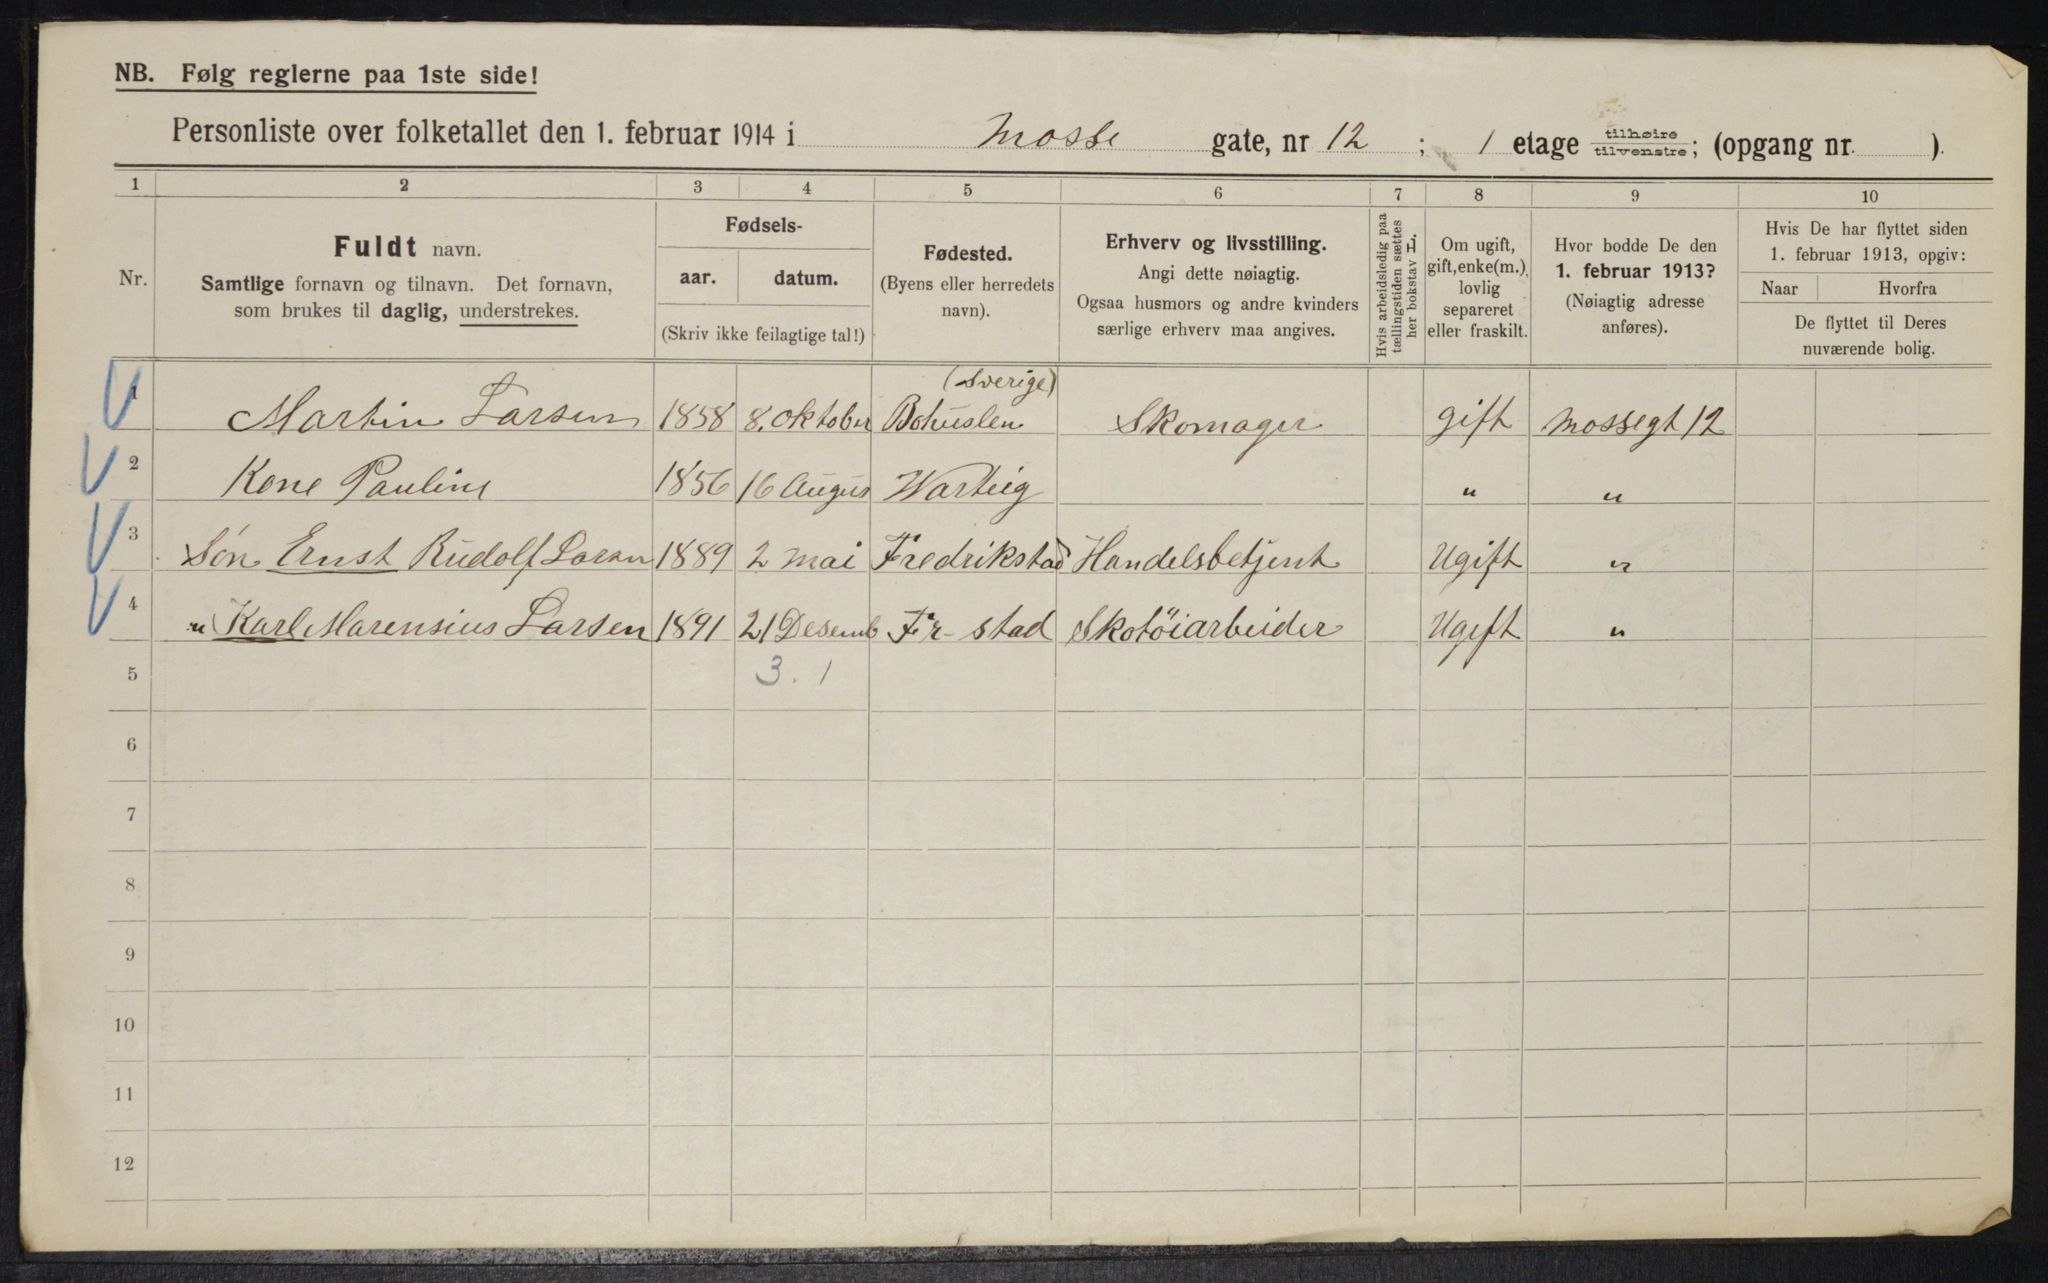 NB. Følg reglerne paa 1ste side!
Personliste over folketallet den 1. februar 1914 i Mosse gate, nr 12 ; 1 etage tilhøire tilvenstre; (opgang nr. ).
1 2 3 4 5 6 7 8 9 10
Nr.
Fuldt navn.
Samtlige fornavn og tilnavn. Det fornavn,
som brukes til daglig, understrekes.
Fødsels-
aar. datum.
(Skriv ikke feilagtige tal!)
Fødested.
(Byens eller herredets
navn).
Erhverv og livsstilling.
Angi dette nøiagtig.
Ogsaa husmors og andre kvinders
særlige erhverv maa angives.
Hvis arbeidsledig paa
tællingstiden sættes
her bokstav L.
Om ugift,
gift, enke(m.),
lovlig
separeret
eller fraskilt.
Hvor bodde De den
1. februar 1913?
(Nøiagtig adresse
anføres).
Hvis De har flyttet siden
1. februar 1913, opgiv:
Naar Hvorfra
De flyttet til Deres
nuværende bolig.
(Sverige)
1 Martin Larsen 1858 8. Oktober Bohuslen Skomager gift Mossegt 12
2 Kone Pauline 1856 16 Augus Warteig " "
3 Søn Ernst Rudolf Larsen 1889 2 mai Fredrikstad Handelsbetjent Ugift "
4 " Karl Marensius Larsen 1891 21 Desemb Fr-stad Skotöiarbeider Ugift "
5 3. 1
6
7
8
9
10
11
12